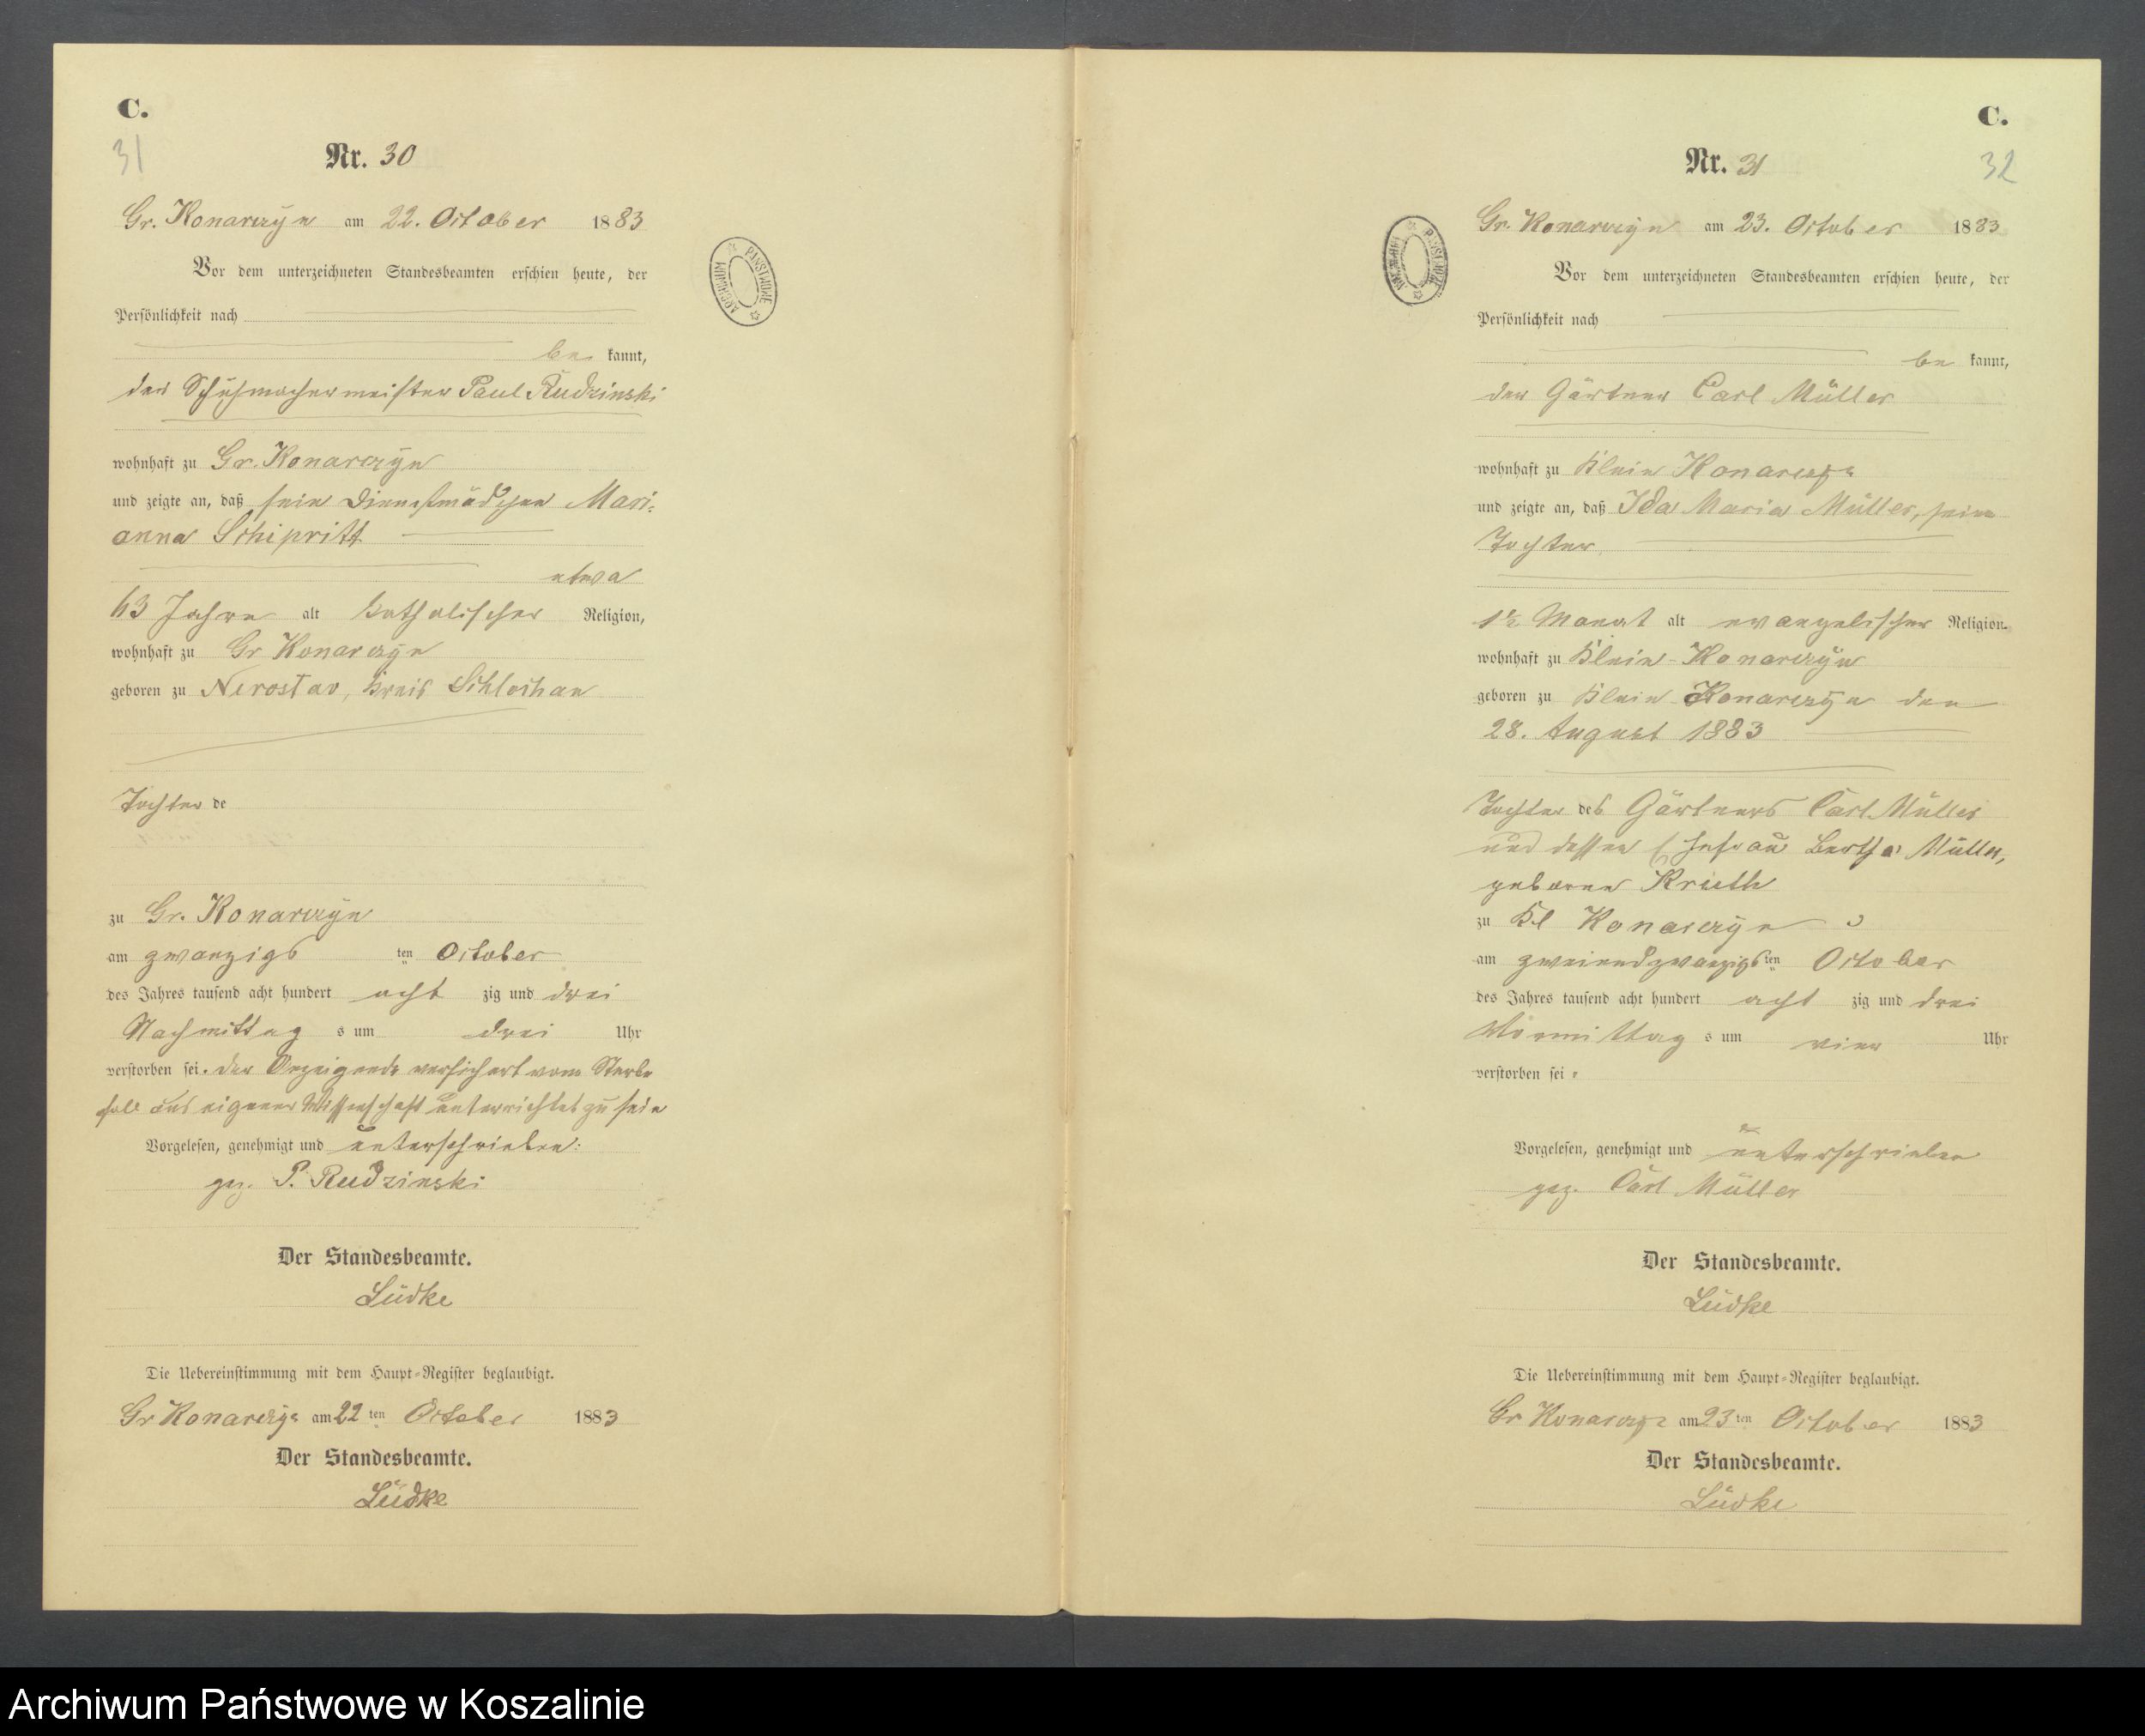 C.
31
Nr. 30
Gr. Konarczyn am 22. October 1883
Vor dem unterzeichneten Standesbeamten erschien heute, der
Persönlichkeit nach
be kannt,
der Schuhmachermeister Paul Rudzinski
wohnhaft zu Gr. Konarczyn
und zeigte an, daß sein Dienstmädchen Mari-
anna Schipritt
etwa
63 Jahre alt katholischer Religion,
wohnhaft zu Gr Konarczyn
geboren zu Kreis Schlochau
Tochter de
zu Gr. Konarczyn
am zwanzigs ten October
des Jahres tausend acht hundert acht zig und drei
Nachmittag s um drei Uhr
verstorben sei. der Anzeigende versichert vom Sterbe
fall aus eigener Wissenschaft unterrichtet zu sein
Vorgelesen, genehmigt und unterschrieben:
gez. P. Rudzinski
Der Standesbeamte.
Lüdke
Die Uebereinstimmung mit dem Haupt-Register beglaubigt.
Gr Konarczyn am 22 ten October 1883
Der Standesbeamte.
Lüdke
ARCHIWUM PAŃSTWOWE
C.
32
Nr. 31
Gr. Konarczyn am 23. October 1883
Vor dem unterzeichneten Standesbeamten erschien heute, der
Persönlichkeit nach
be kannt,
der Gärtner Carl Müller
wohnhaft zu Klein Konarczyn
und zeigte an, daß Ida Maria Müller, seine
Tochter
1½ Monat alt evangelischer Religion,
wohnhaft zu Klein-Konarczyn
geboren zu Klein Konarczyn den
28. August 1883
Tochter des Gärtners Carl Müller
und dessen Ehefrau Bertha Müller,
geborene
zu Kl Konarczyn
am zweiundzwanzigs ten October
des Jahres tausend acht hundert acht zig und drei
Vormittag s um vier Uhr
verstorben sei.
Vorgelesen, genehmigt und unterschrieben
gez. Carl Müller
Der Standesbeamte.
Lüdke
Die Uebereinstimmung mit dem Haupt-Register beglaubigt.
Gr Konarczyn am 23 ten October 1883
Der Standesbeamte.
Lüdke
ARCHIWUM PAŃSTWOWE
Archiwum Państwowe w Koszalinie